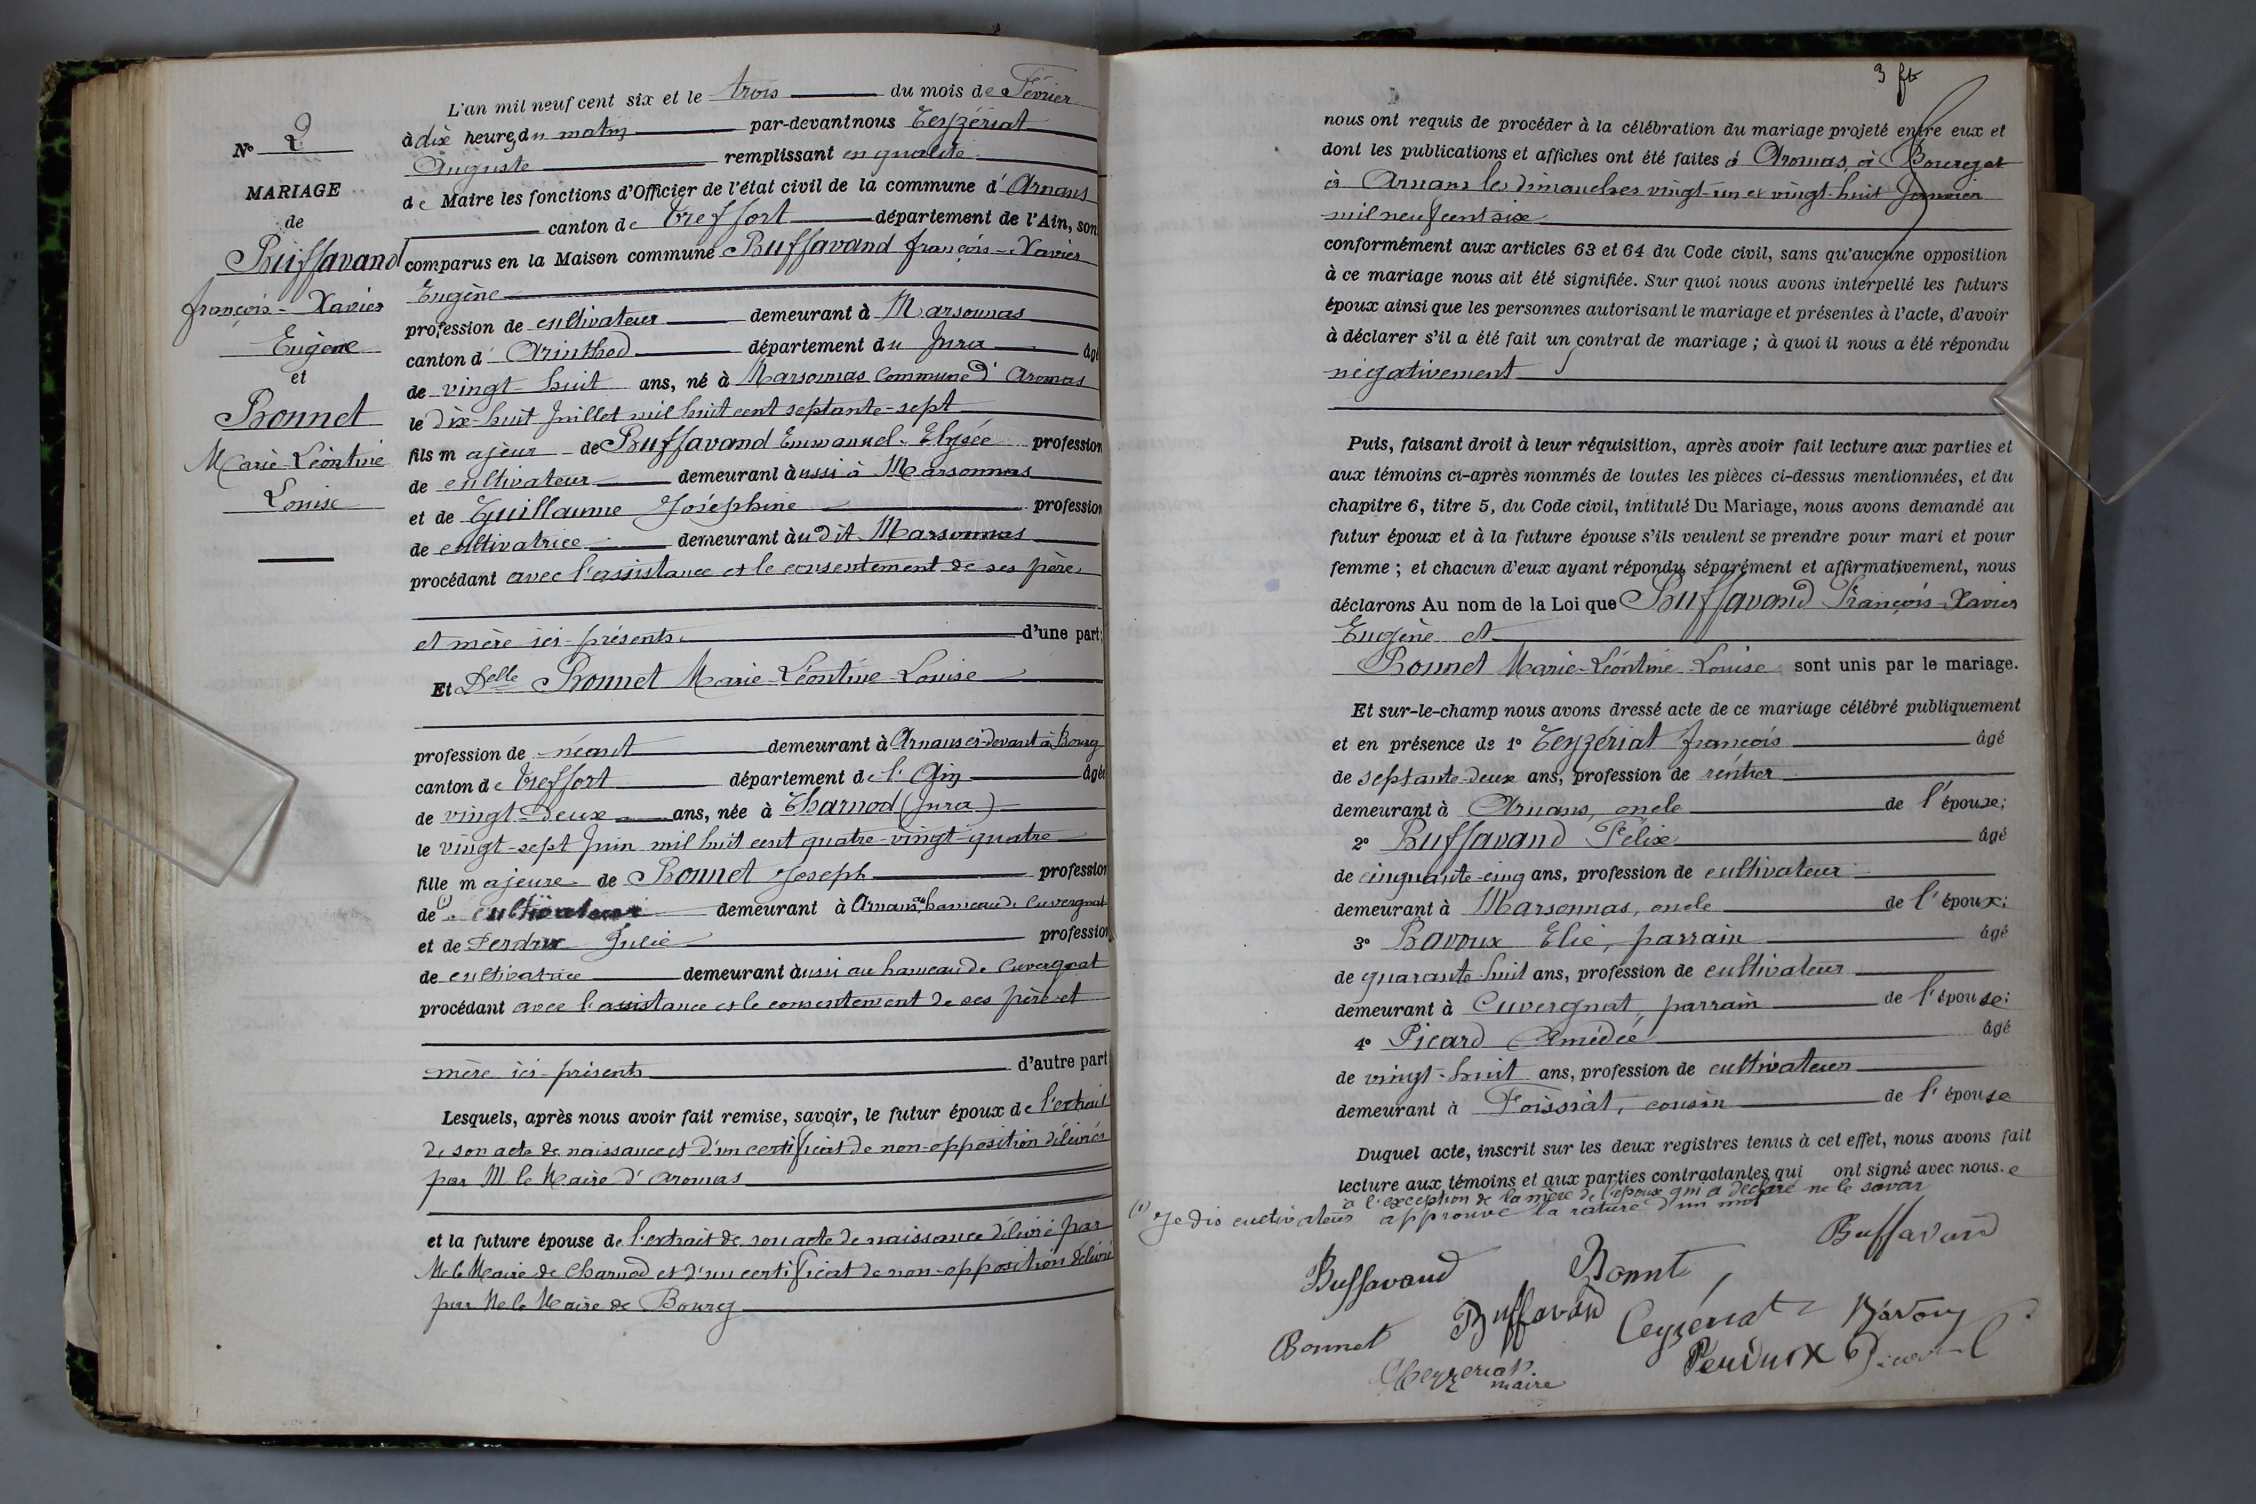 L'an mil neuf cent six et le trois du mois de Février
à dix heures du matin par-devant nous Ceyzériat
Auguste remplissant en qualité
de Maire les fonctions d'Officier de l'état civil de la commune d'Arnans
canton de Treffort département de l'Ain, sont
comparus en la Maison commune Buffavand françois-Xavier
Eugène
profession de cultivateur demeurant à Marsonnas
canton d'Arinthod département du Jura âgé
de vingt-huit ans, né à Marsonnas commune d'Aromas
le dix-huit Juillet mil huit cent septante-sept
fils majeur de Buffavand Emmanuel-Elysée profession
de cultivateur demeurant aussi à Marsonnas
et de Guillaume Joséphine profession
de cultivatrice demeurant au dit Marsonnas
procédant avec l'assistance et le consentement de ses père
et mère ici-présents d'une part;
Et Delle Bonnet Marie-Léontine-Louise
profession de néant demeurant à Arnans ci-devant à Bourg
canton de Treffort département de l'Ain âgée
de vingt-deux ans, née à Charnod (Jura)
le vingt-sept Juin mil huit cent quatre-vingt-quatre
fille majeure de Bonnet Joseph profession
de (1) cultivateur demeurant à Arnans, hameau de Cuvergnat
et de Perdrix Julie profession
de cultivatrice demeurant aussi au hameau de Cuvergnat
procédant avec l'assistance et le consentement de ses père et
mère ici-présents d'autre part
Lesquels, après nous avoir fait remise, savoir, le futur époux de l'extrait
de son acte de naissance et d'un certificat de non-opposition délivrés
par M le Maire d'Aromas
et la future épouse de l'extrait de son acte de naissance délivré par
M le Maire de Charnod et d'un certificat de non-opposition délivré
par M le Maire de Bourg
N° 2
MARIAGE
de
Buffavand
françois-Xavier
Eugène
et
Bonnet
Marie-Léontine
Louise
3 ft
nous ont requis de procéder à la célébration du mariage projeté entre eux et
dont les publications et affiches ont été faites à Aromas, à Bourg et
à Arnans les dimanches vingt-un et vingt-huit Janvier
mil neuf cent six
conformément aux articles 63 et 64 du Code civil, sans qu'aucune opposition
à ce mariage nous ait été signifiée. Sur quoi nous avons interpellé les futurs
époux ainsi que les personnes autorisant le mariage et présentes à l'acte, d'avoir
à déclarer s'il a été fait un contrat de mariage ; à quoi il nous a été répondu
négativement
Puis, faisant droit à leur réquisition, après avoir fait lecture aux parties et
aux témoins ci-après nommés de toutes les pièces ci-dessus mentionnées, et du
chapitre 6, titre 5, du Code civil, intitulé Du Mariage, nous avons demandé au
futur époux et à la future épouse s'ils veulent se prendre pour mari et pour
femme ; et chacun d'eux ayant répondu séparément et affirmativement, nous
déclarons Au nom de la Loi que Buffavand François-Xavier
Eugène et
Bonnet Marie-Léontine-Louise sont unis par le mariage.
Et sur-le-champ nous avons dressé acte de ce mariage célébré publiquement
et en présence de 1° Ceyzériat françois âgé
de septante-deux ans, profession de rentier
demeurant à Arnans, oncle de l'épouse;
2° Buffavand Félix âgé
de cinquante-cinq ans, profession de cultivateur
demeurant à Marsonnas, oncle de l'époux;
3° Bavoux Elie, parrain âgé
de quarante-huit ans, profession de cultivateur
demeurant à Cuvergnat, parrain de l'épouse;
4° Picard Amédée âgé
de vingt-huit ans, profession de cultivateur
demeurant à Foissiat, cousin de l'épouse
Duquel acte, inscrit sur les deux registres tenus à cet effet, nous avons fait
lecture aux témoins et aux parties contractantes qui ont signé avec nous.
à l'exception de la mère de l'époux qui a déclaré ne le savoir
(1) Je dis cultivateur approuvé la rature d'un mot
Buffavand
Buffavand Bonnt
Bonnet Buffavand Ceyzériat Bavoux
Ceyzeriat Perdrix Picard
maire